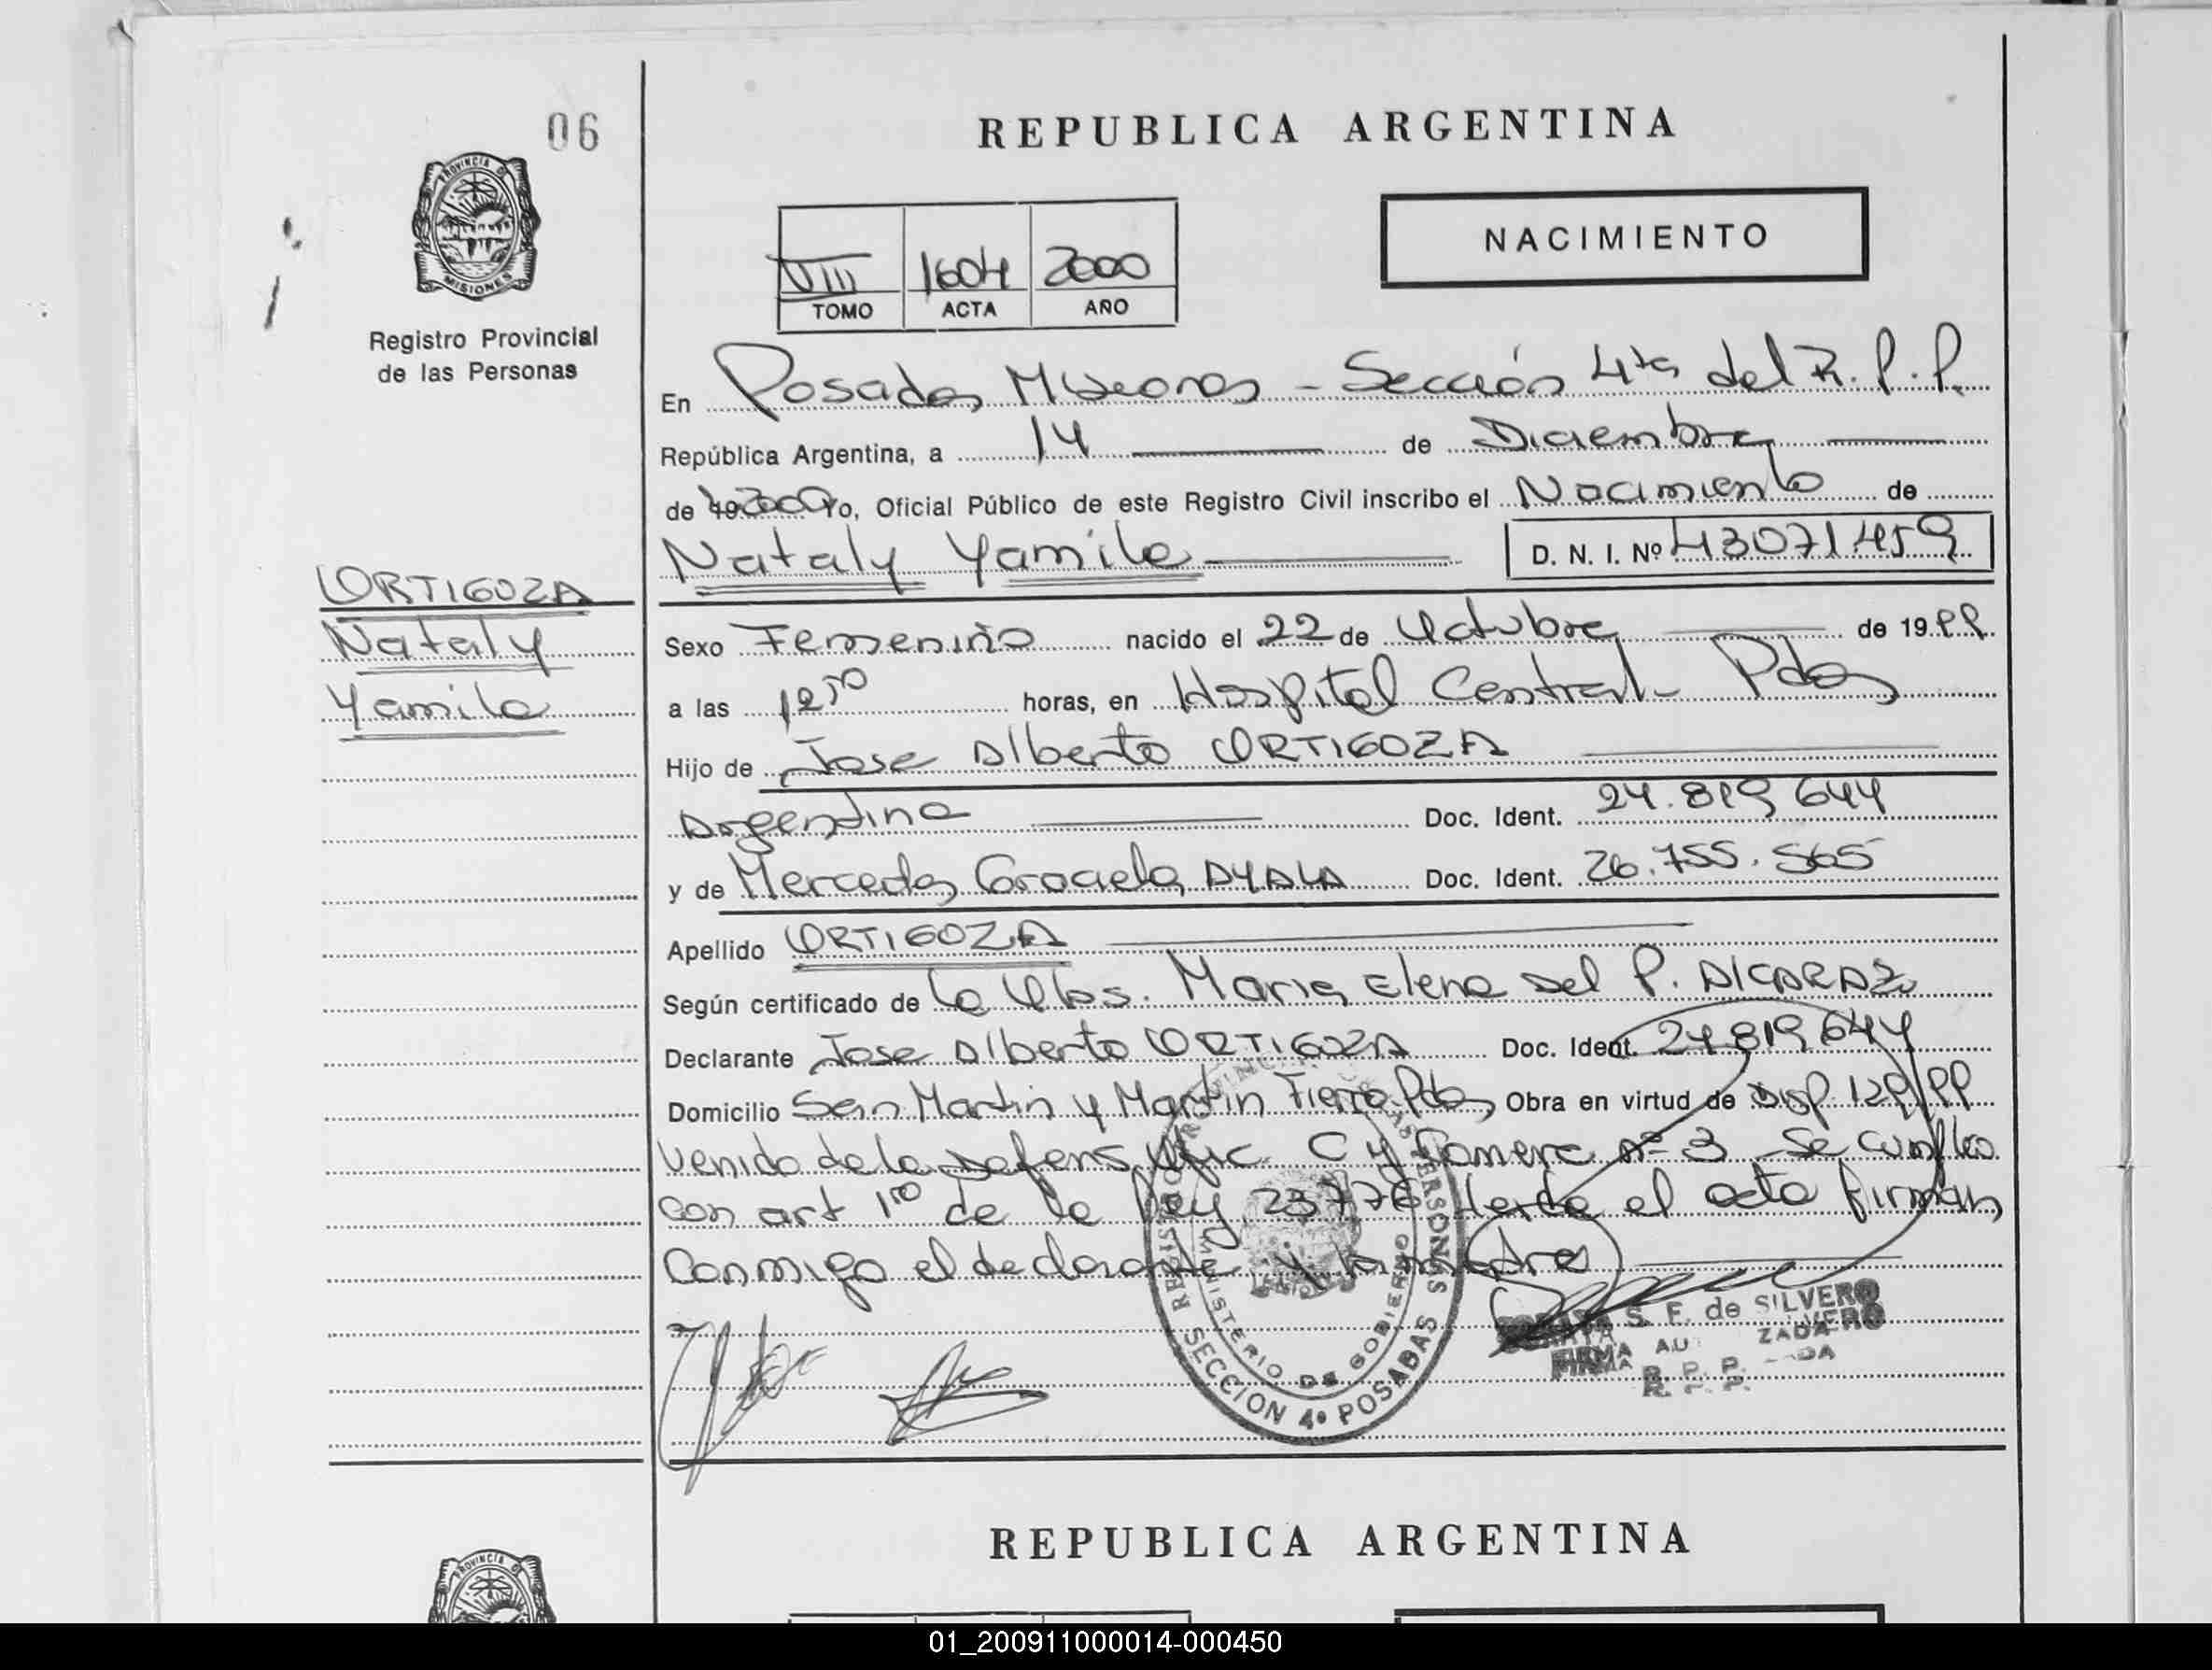 06
PROVINCIA DE
MISIONES
Registro Provincial
de las Personas
REPUBLICA ARGENTINA
VIII 1604 2000
TOMO ACTA AÑO
NACIMIENTO
En Posadas Misiones - Sección 4ta del R.P.P.
República Argentina, a 14 de Diciembre
de 2000 Yo, Oficial Público de este Registro Civil inscribo el Nacimiento de
Nataly Yamila D. N. I. Nº 43071459
ORTIGOZA
Nataly
Yamila
Sexo Femenino nacido el 22 de Octubre de 1999
a las 12 50 horas, en Hospital Central - Pdas
Hijo de Jose Alberto ORTIGOZA
Argentino Doc. Ident. 24.819.644
y de Mercedes Graciela AYALA Doc. Ident. 26.755.565
Apellido ORTIGOZA
Según certificado de la Obs. Maria Elena del P. ALCARAZ
Declarante Jose Alberto ORTIGOZA Doc. Ident. 24.819.644
Domicilio San Martin y Martin Fierro Pdas Obra en virtud de Disp. 129/99
venido de la Defens. Ofic. C y Comerc nº 3 Se cumplio
con art 1ro de la Ley 23776 Leida el acta firman
conmigo el declarante y la madre
S. F. de SILVERO
FIRMA AU ZADA
R. P. P.
MINISTERIO DE GOBIERNO
SECCION 4º POSADAS
REPUBLICA ARGENTINA
PROVINCIA DE
01_200911000014-000450